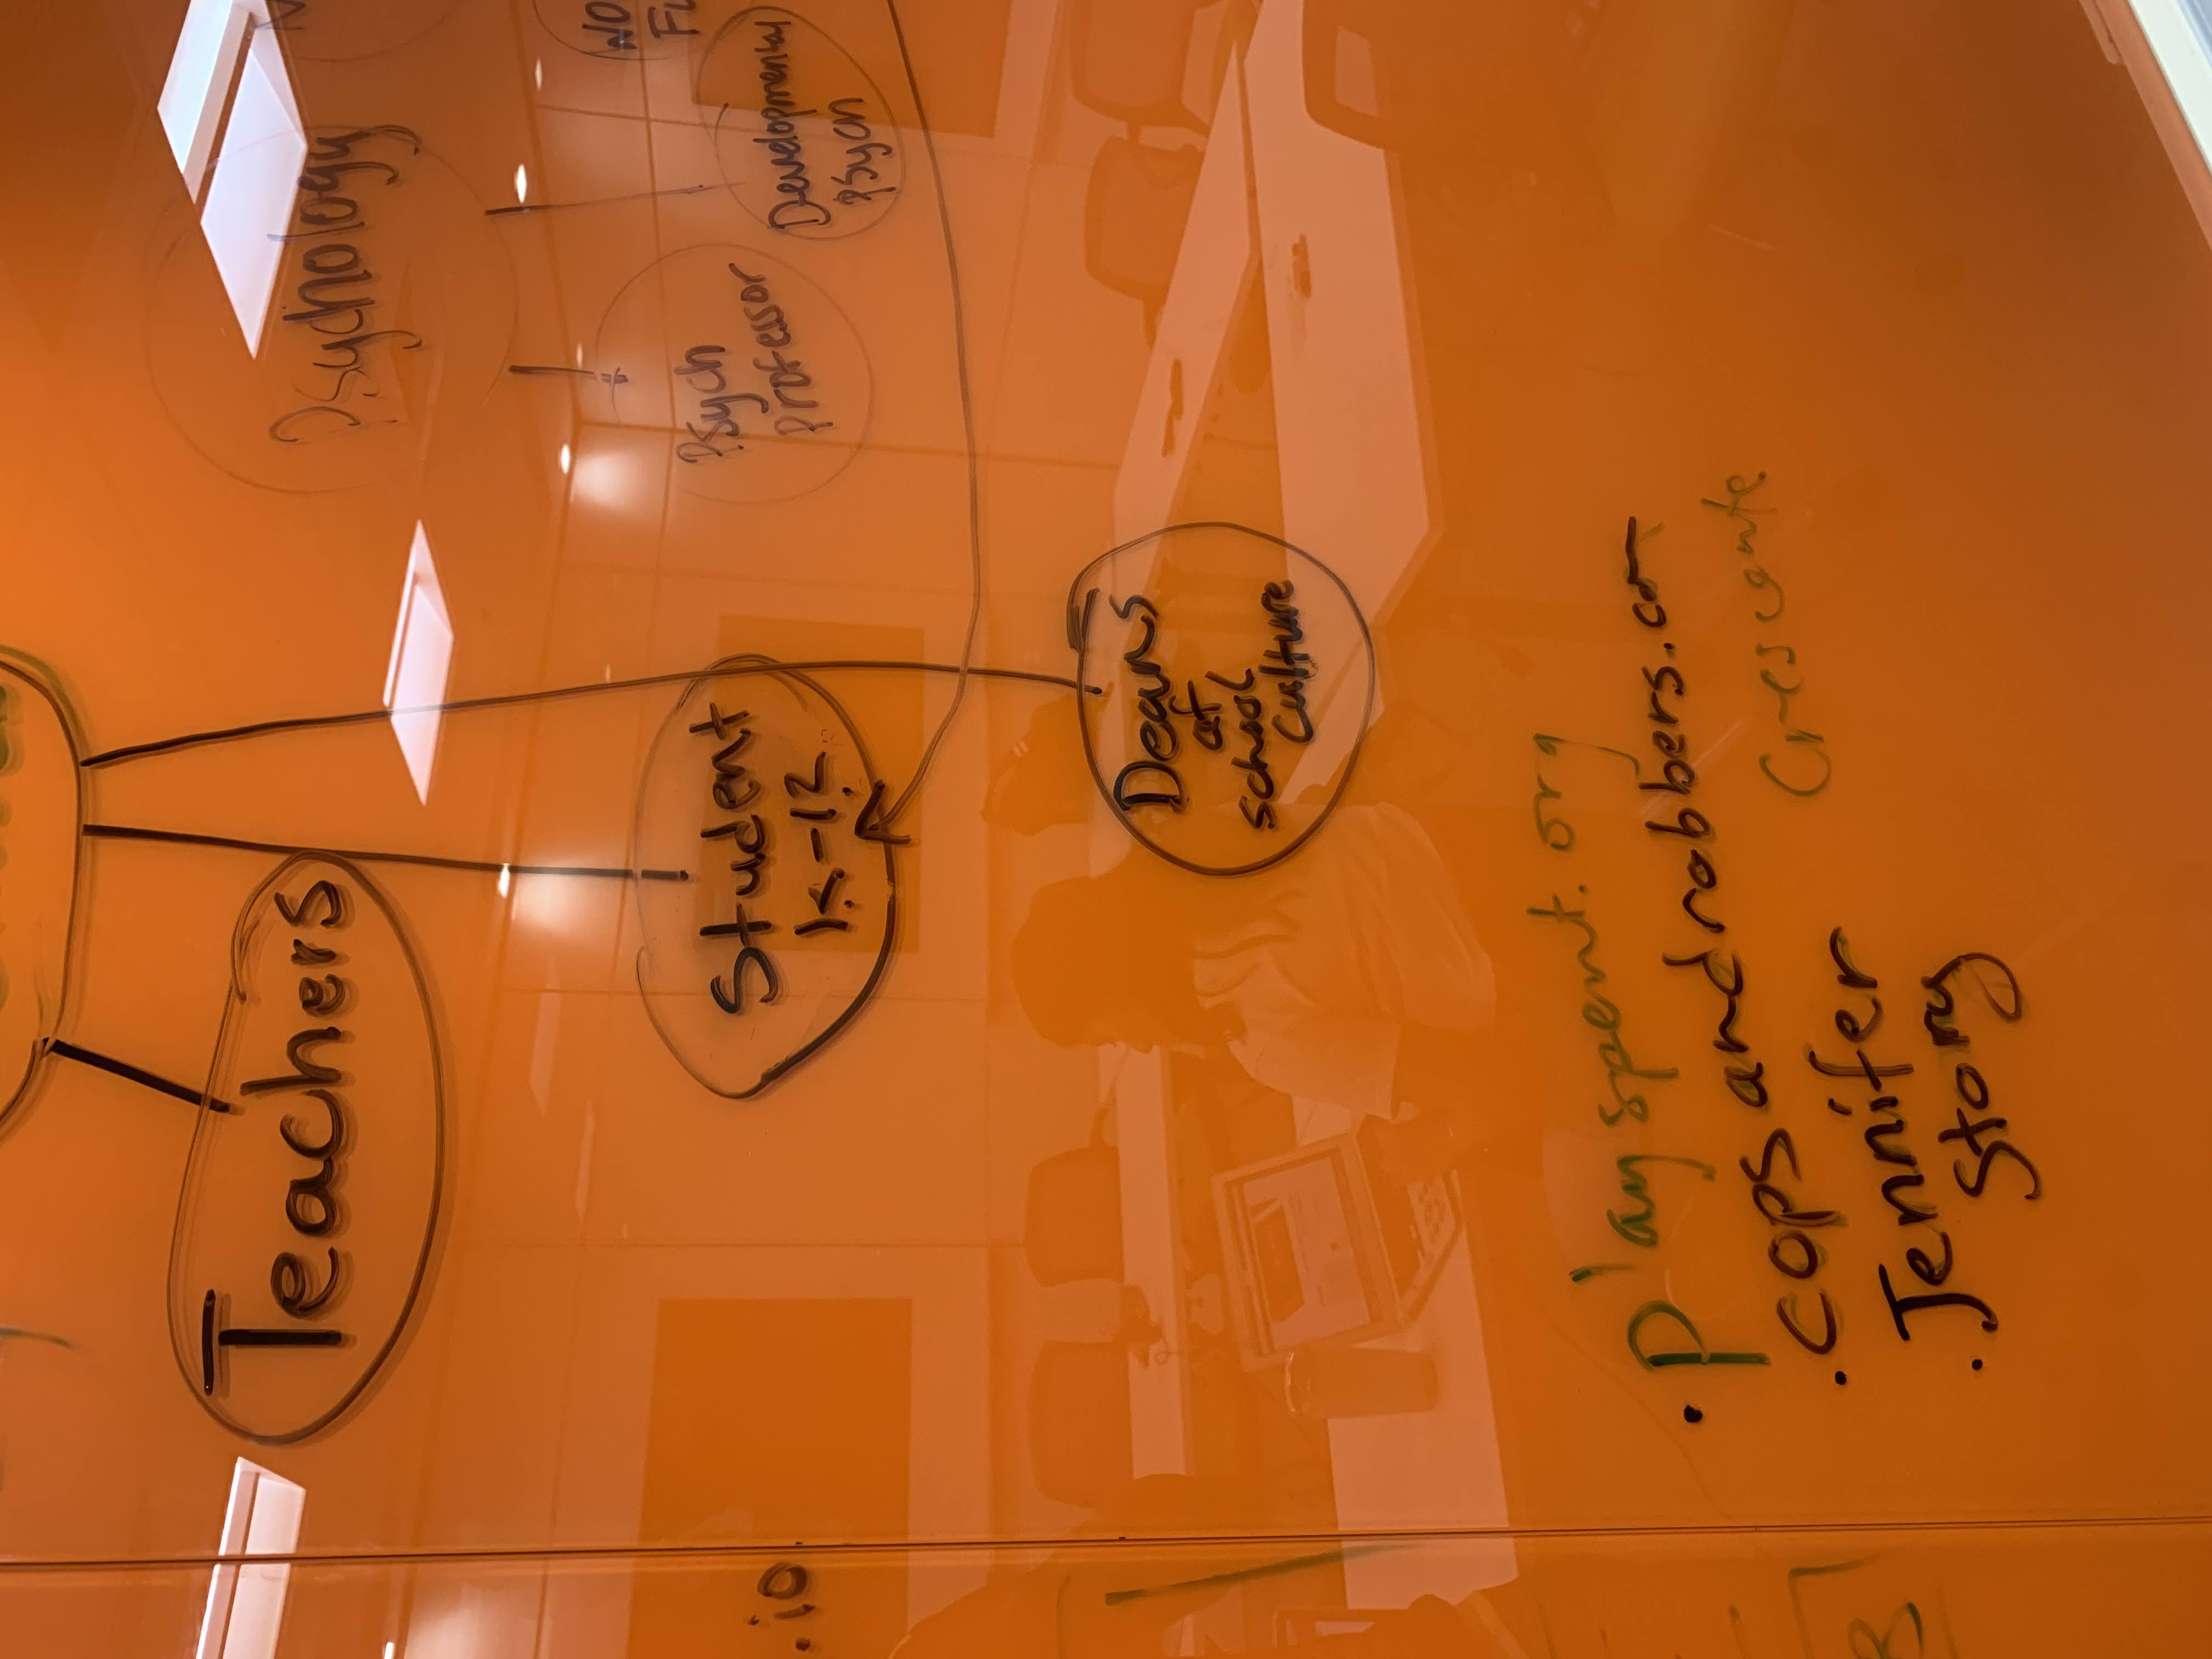 Teachers
Psychology
Student
K-12
Psych
Professor
Developmental
Psych
.io
Deans
of
School
Culture
• Playspent.org
• copsandrobbers.com
• Jennifer
Story